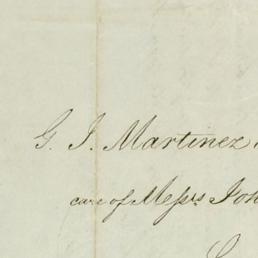 G. J. Martinez
care of Messrs Joh